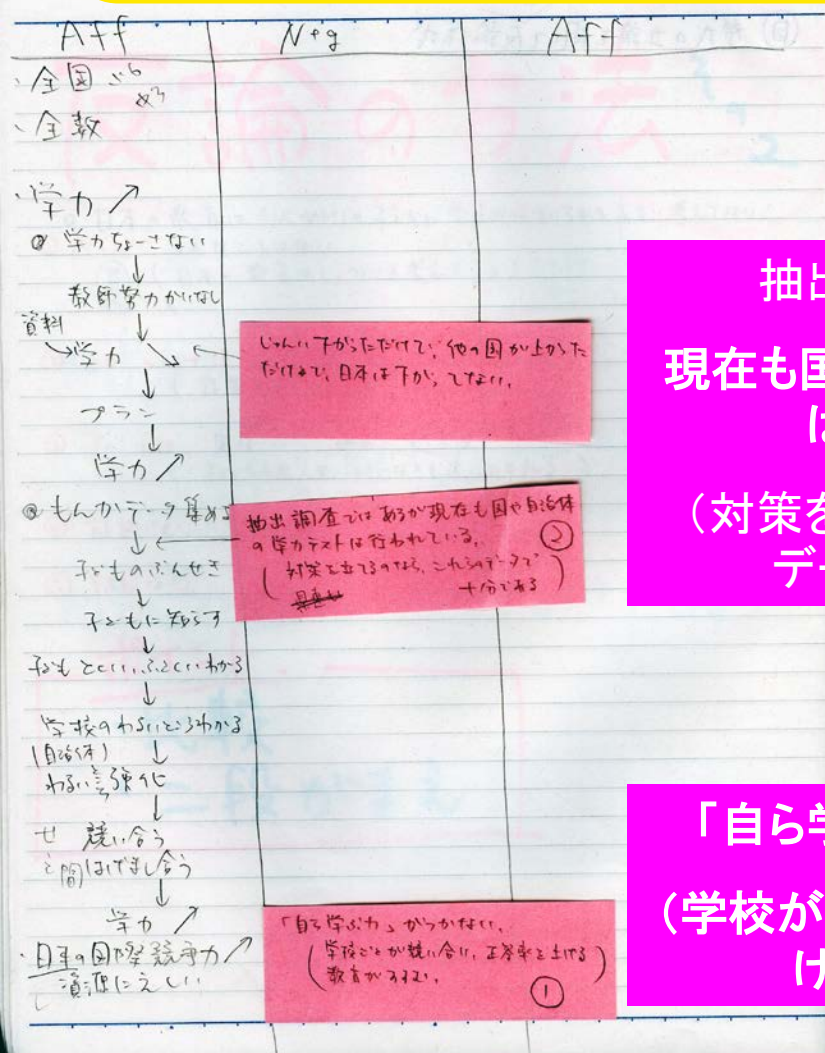 Aff
Neg
Aff
・全国
・全数
・学力↗
学力ちょーさない
↓
教師努力かいなし
資料 ↓
学力↘
↓
プラン
↓
学力↗
もんかデータ集める
↓
子どものぶんせき
↓
子どもに知らす
↓
子どもとくい、ふとくいわかる
↓
学校のわるいところわかる
(自治体) ↓
わるい 強化
↓
競い合う
間はげまし合う
↓
学力↗
・日本の国際競争力↗
資源にえしい
じゅんい下がっただけで、他の国が上がった
だけで、日本は下がってない。
抽出調査ではあるが現在も国や自治体
の学力テストは行われている。 ②
(対策を立てるのなら、これらのデータで
十分である)
「自ら学ぶ力」がつかない。
(学校ごとが競い合い、正答率を上げる
教育がすすむ。)
①
抽出
現在も国
は
(対策を
デー
「自ら学
(学校が
け